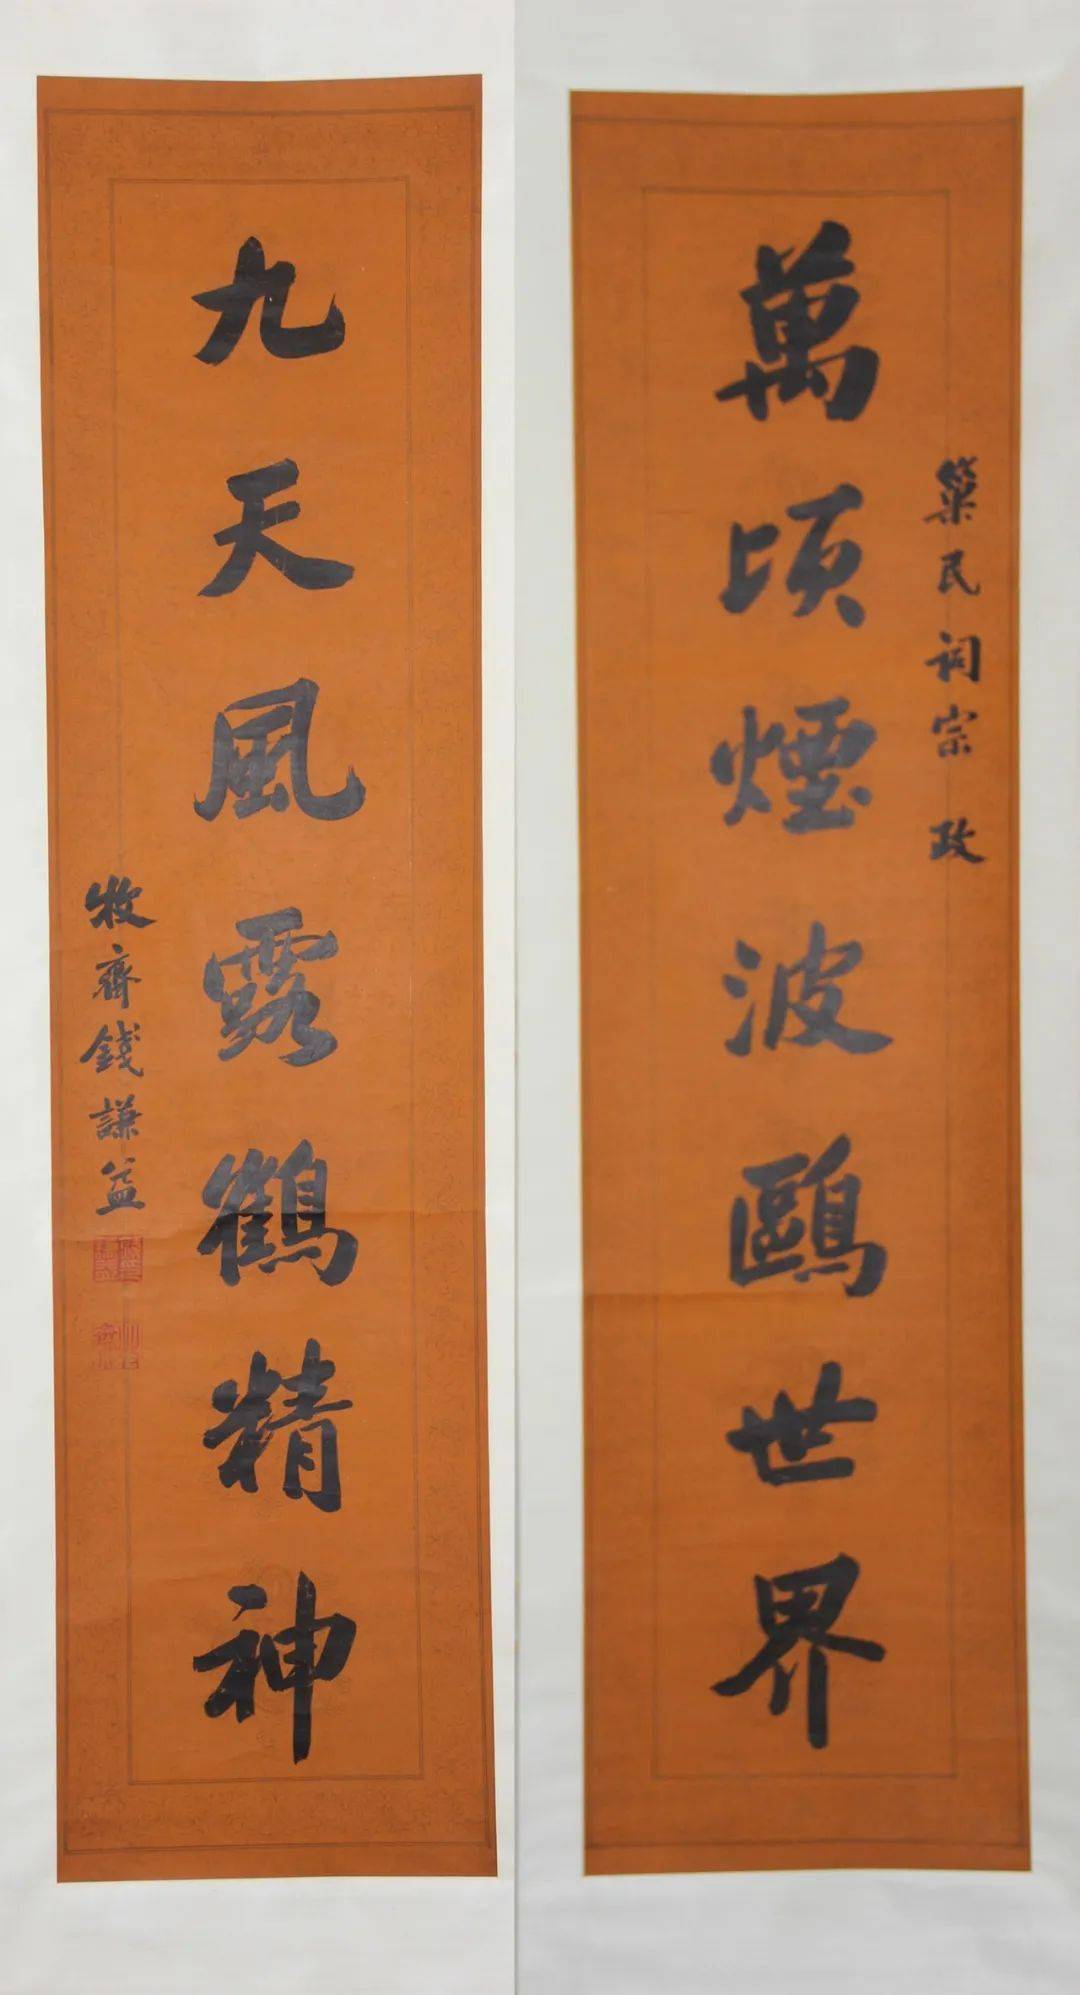 萬頃煙波鷗世界
築民詞宗 政
九天風露鶴精神
牧齋錢謙益